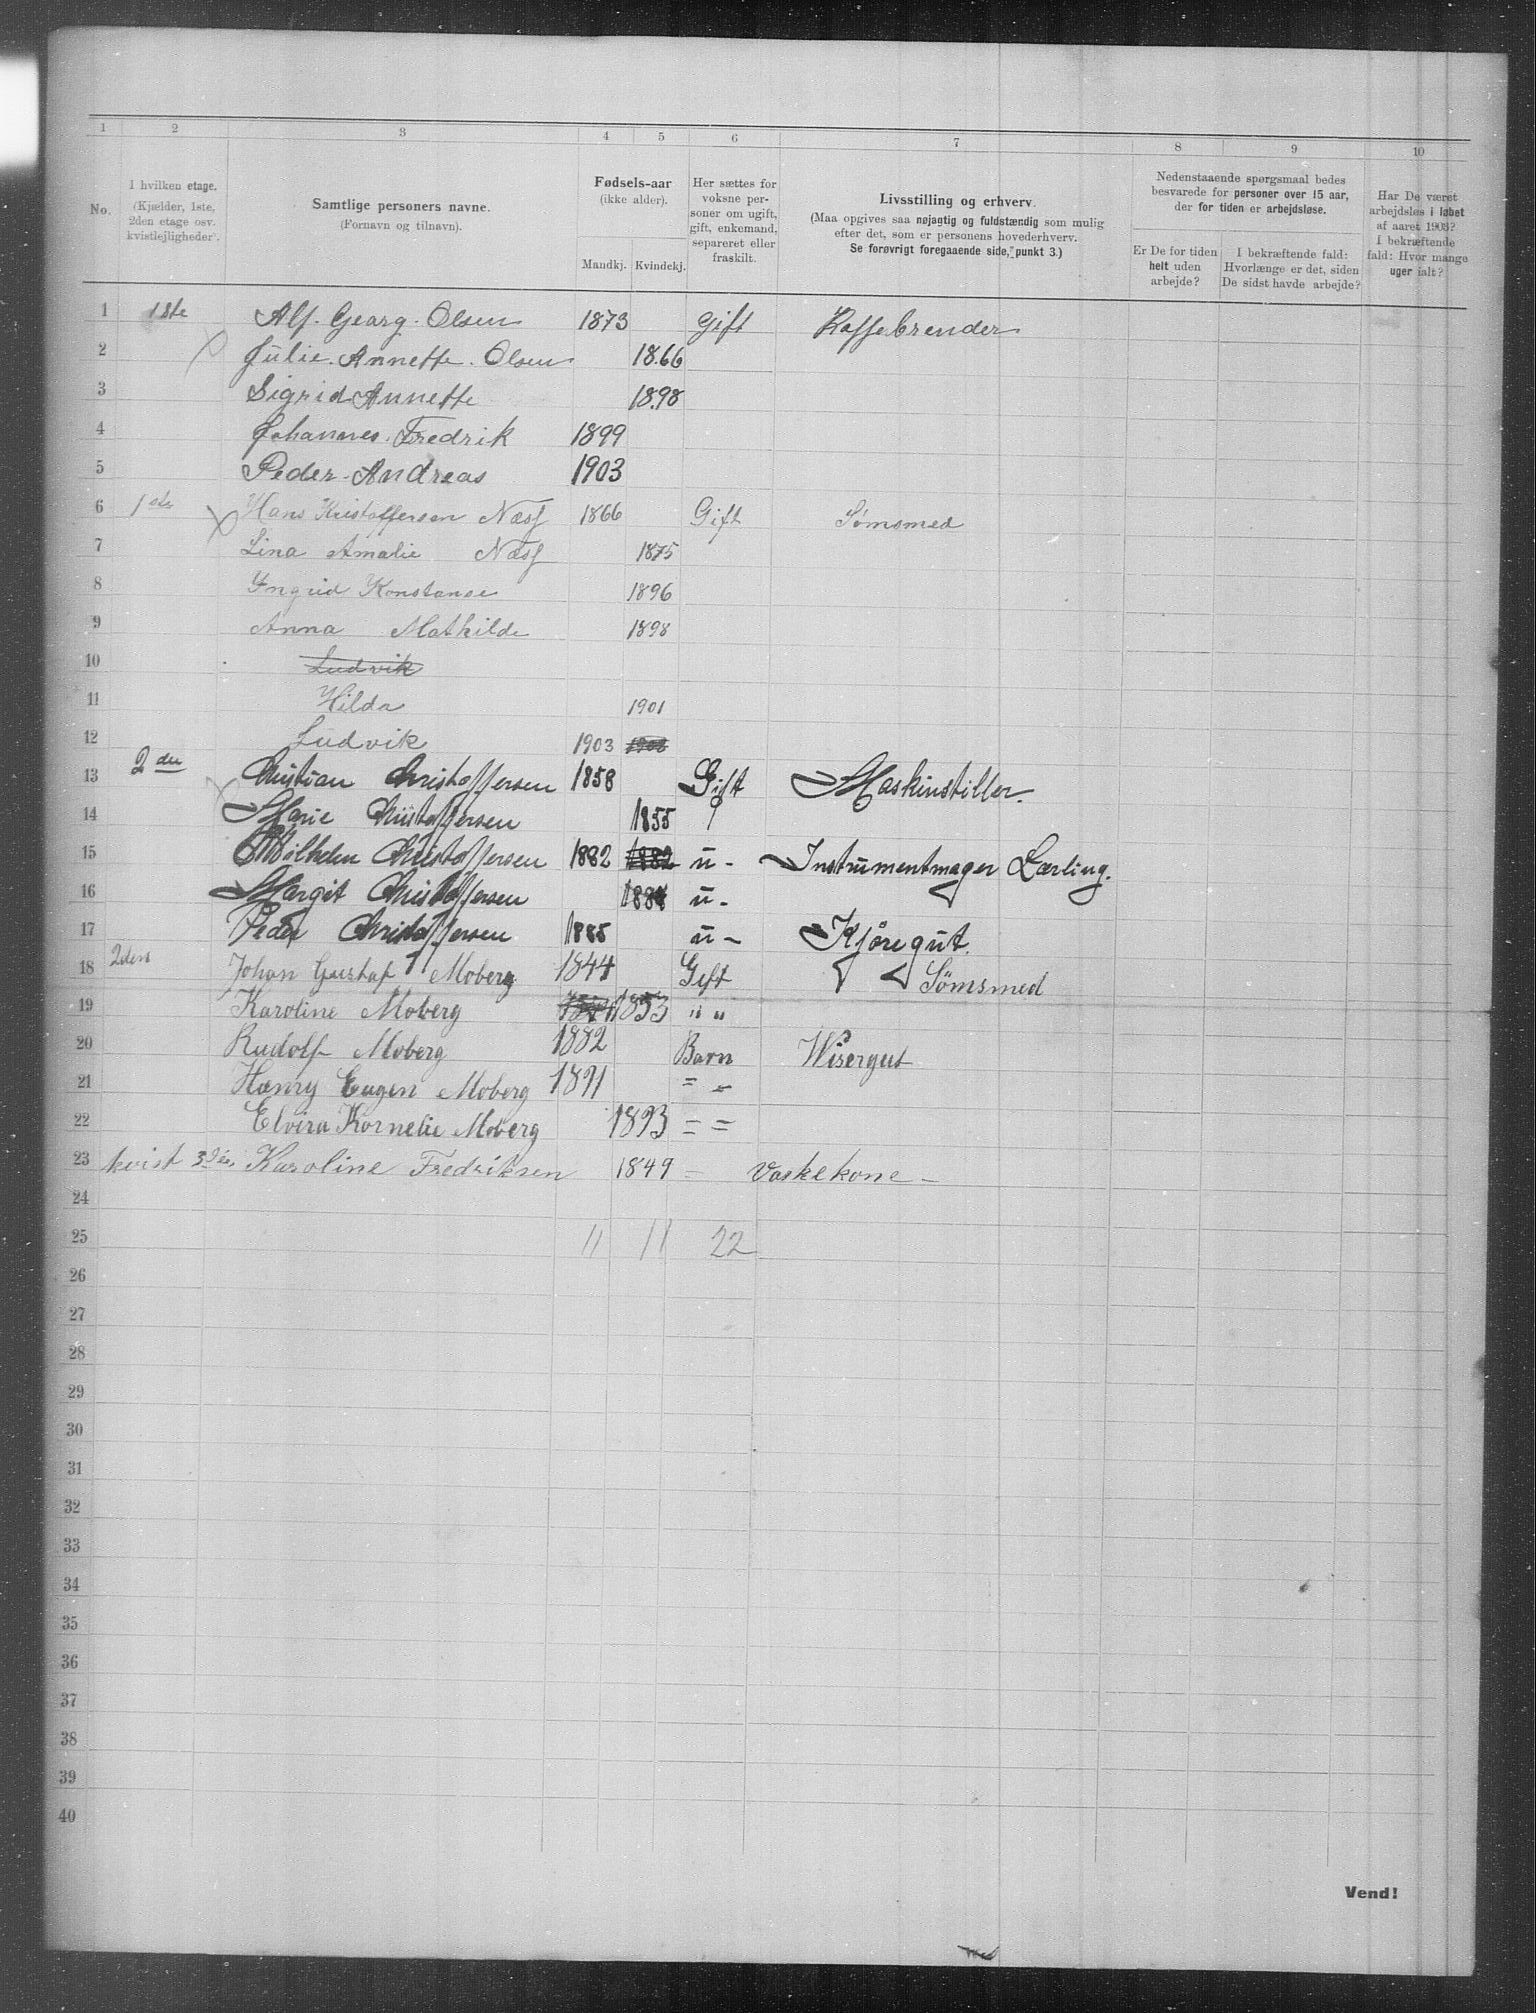 1 2 3 4 5 6 7 8 9 10
No.
I hvilken etage.
(Kjælder, 1ste,
2den etage osv.
kvistlejligheder).
Samtlige personers navne.
(Fornavn og tilnavn).
Fødsels-aar
(ikke alder).
Mandkj. Kvindekj.
Her sættes for
voksne per-
soner om ugift,
gift, enkemand,
separeret eller
fraskilt.
Livsstilling og erhverv.
(Maa opgives saa nøjagtig og fuldstændig som mulig
efter det, som er personens hovederhverv.
Se forøvrigt foregaaende side, punkt 3.)
Nedenstaaende spørgsmaal bedes
besvarede for personer over 15 aar,
der for tiden er arbejdsløse.
Er De for tiden
helt uden
arbejde?
I bekræftende fald:
Hvorlænge er det, siden
De sidst havde arbejde?
Har De været
arbejdsløs i løbet
af aaret 1903?
I bekræftende
fald: Hvor mange
uger ialt?
1 1ste Alf. Georg. Olsen 1873 Gift Kaffebrender
2 Julie. Annette. Olsen 1866
3 Sigrid Annette 1898
4 Johannes. Fredrik 1899
5 Peder. Andreas 1903
6 1ste Hans Kristoffersen Næss 1866 Gift Sømsmed
7 Lina Amalie Næss 1875
8 Yngrid Konstanse 1896
9 Anna Mathilde 1898
10 Ludvik
11 Hilda 1901
12 Ludvik 1903
13 2den Christian Christoffersen 1858 Gift Maskinstiller.
14 Marie Christoffersen 1855
15 Wilhelm Christoffersen 1882 1882 u- Instrumentmager Lærling.
16 Margit Christoffersen u-
17 Peder Christoffersen 1885 u- Kjøregut.
18 2den Johan Gustaf Moberg 1844 Gift Sømsmed
19 Karoline Moberg 1853 " "
20 Rudolf Moberg 1882 Barn Wisergut
21 Hanry Eugen Moberg 1891 = =
22 Elvira Kornelie Moberg 1893 = =
23 kvist Karoline Fredriksen 1849 = Vaskekone -
24
25 11 11 22
26
27
28
29
30
31
32
33
34
35
36
37
38
39
40
Vend!